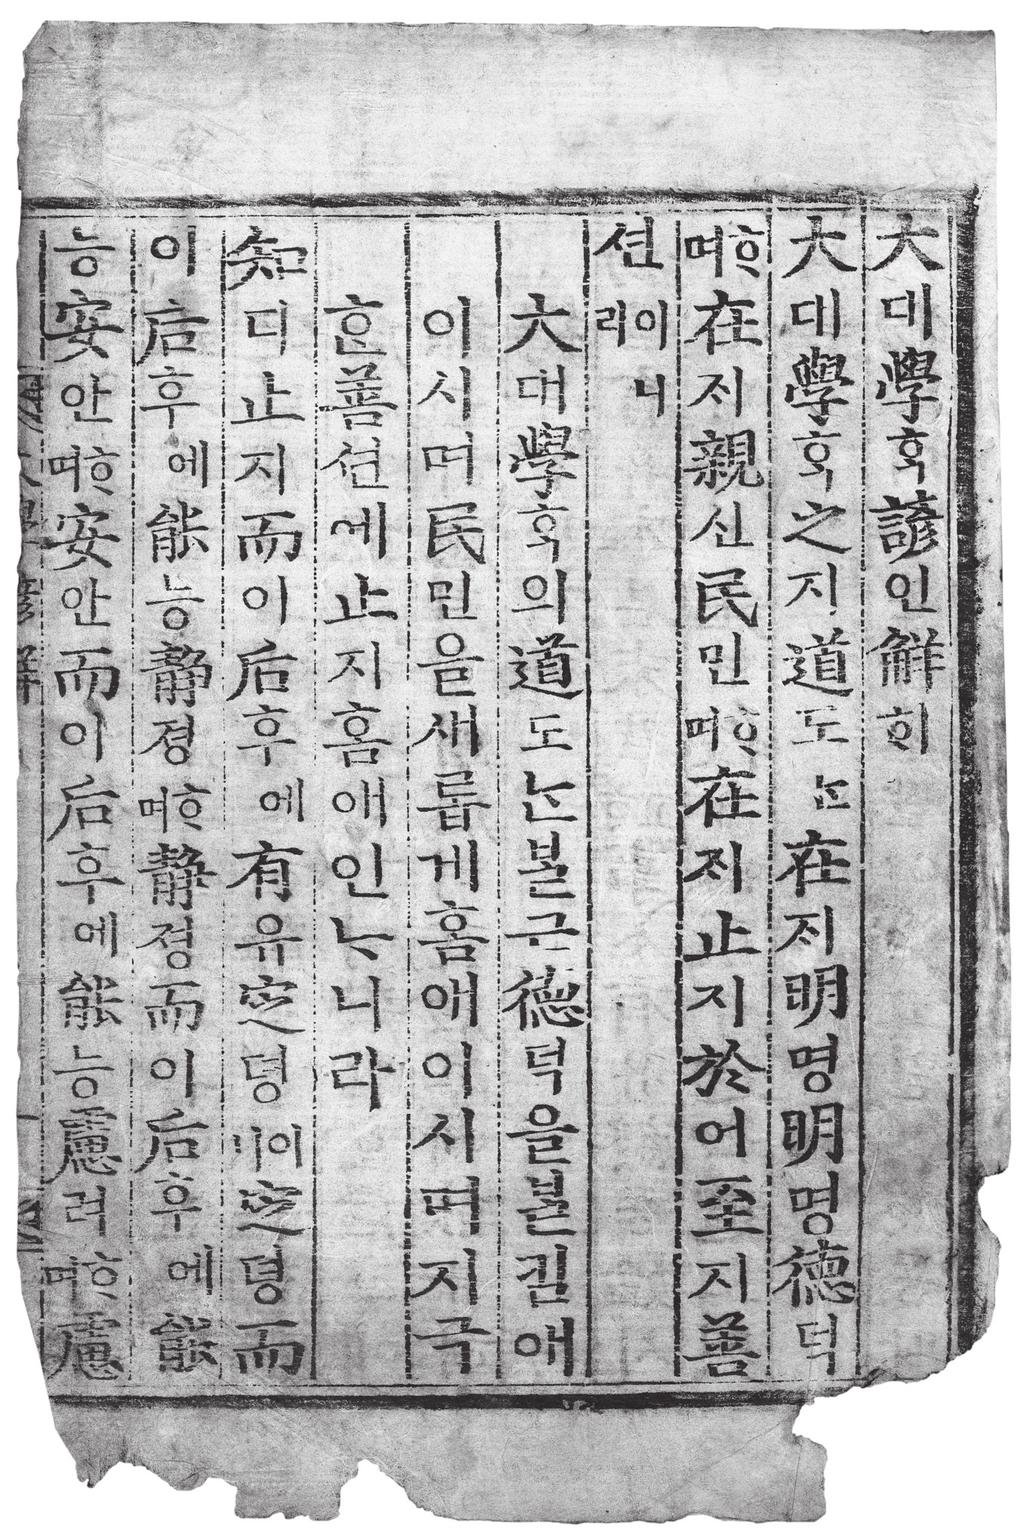 大대學ᄒᆞᆨ諺언解ᄒᆡ
大대學ᄒᆞᆨ之지道도ᄂᆞᆫ在ᄌᆡ明명明명德덕
ᄒᆞ며在ᄌᆡ親신民민ᄒᆞ며在ᄌᆡ止지於어至지善
션이니라
大대學ᄒᆞᆨ의道도ᄂᆞᆫᄇᆞᆯ근德덕을ᄇᆞᆯ킴애
이시며民민을새롭게홈애이시며지극
ᄒᆞᆫ善션에止지홈애인ᄂᆞ니라
知디止지而이后후에有유定뎡이니定뎡而
이后후에能능靜졍ᄒᆞ며靜졍而이后후에能
능安안ᄒᆞ며安안而이后후에能능慮려ᄒᆞ며慮